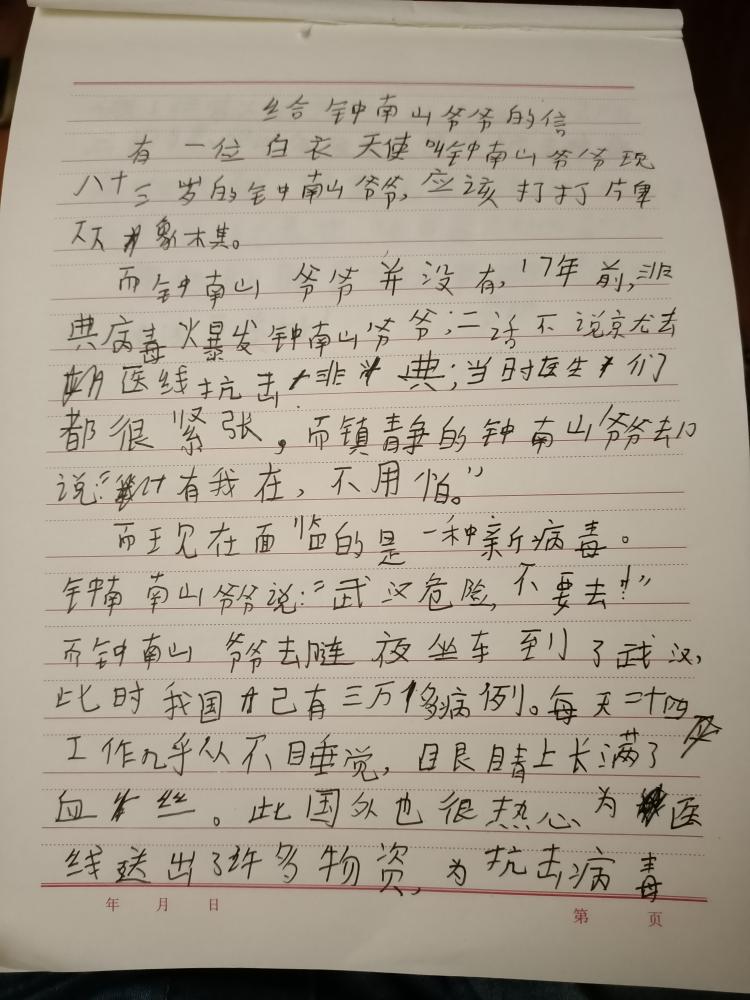 给钟南山爷爷的信
有一位白衣天使叫钟南山爷爷现
八十三岁的钟南山爷爷,应该打打牌
下下象棋。
而钟南山爷爷并没有,17年前,非
典病毒火暴发钟南山爷爷;二话不说京尤去
医线抗击非典;当时医生们
都很紧张,而镇静的钟南山爷爷去口
说:“有我在,不用怕。”
而现在面监的是一种新病毒。
钟南南山爷爷说:“武汉危险,不要去!”
而钟南山爷爷去连夜坐车到了武汉,
此时我国已有三万多病例。每天二十四
工作几乎从不目睡觉,眼睛上长满了
血丝。此国外也很热心为医
线送出了许多物资,为抗击病毒
年 月 日
第 页